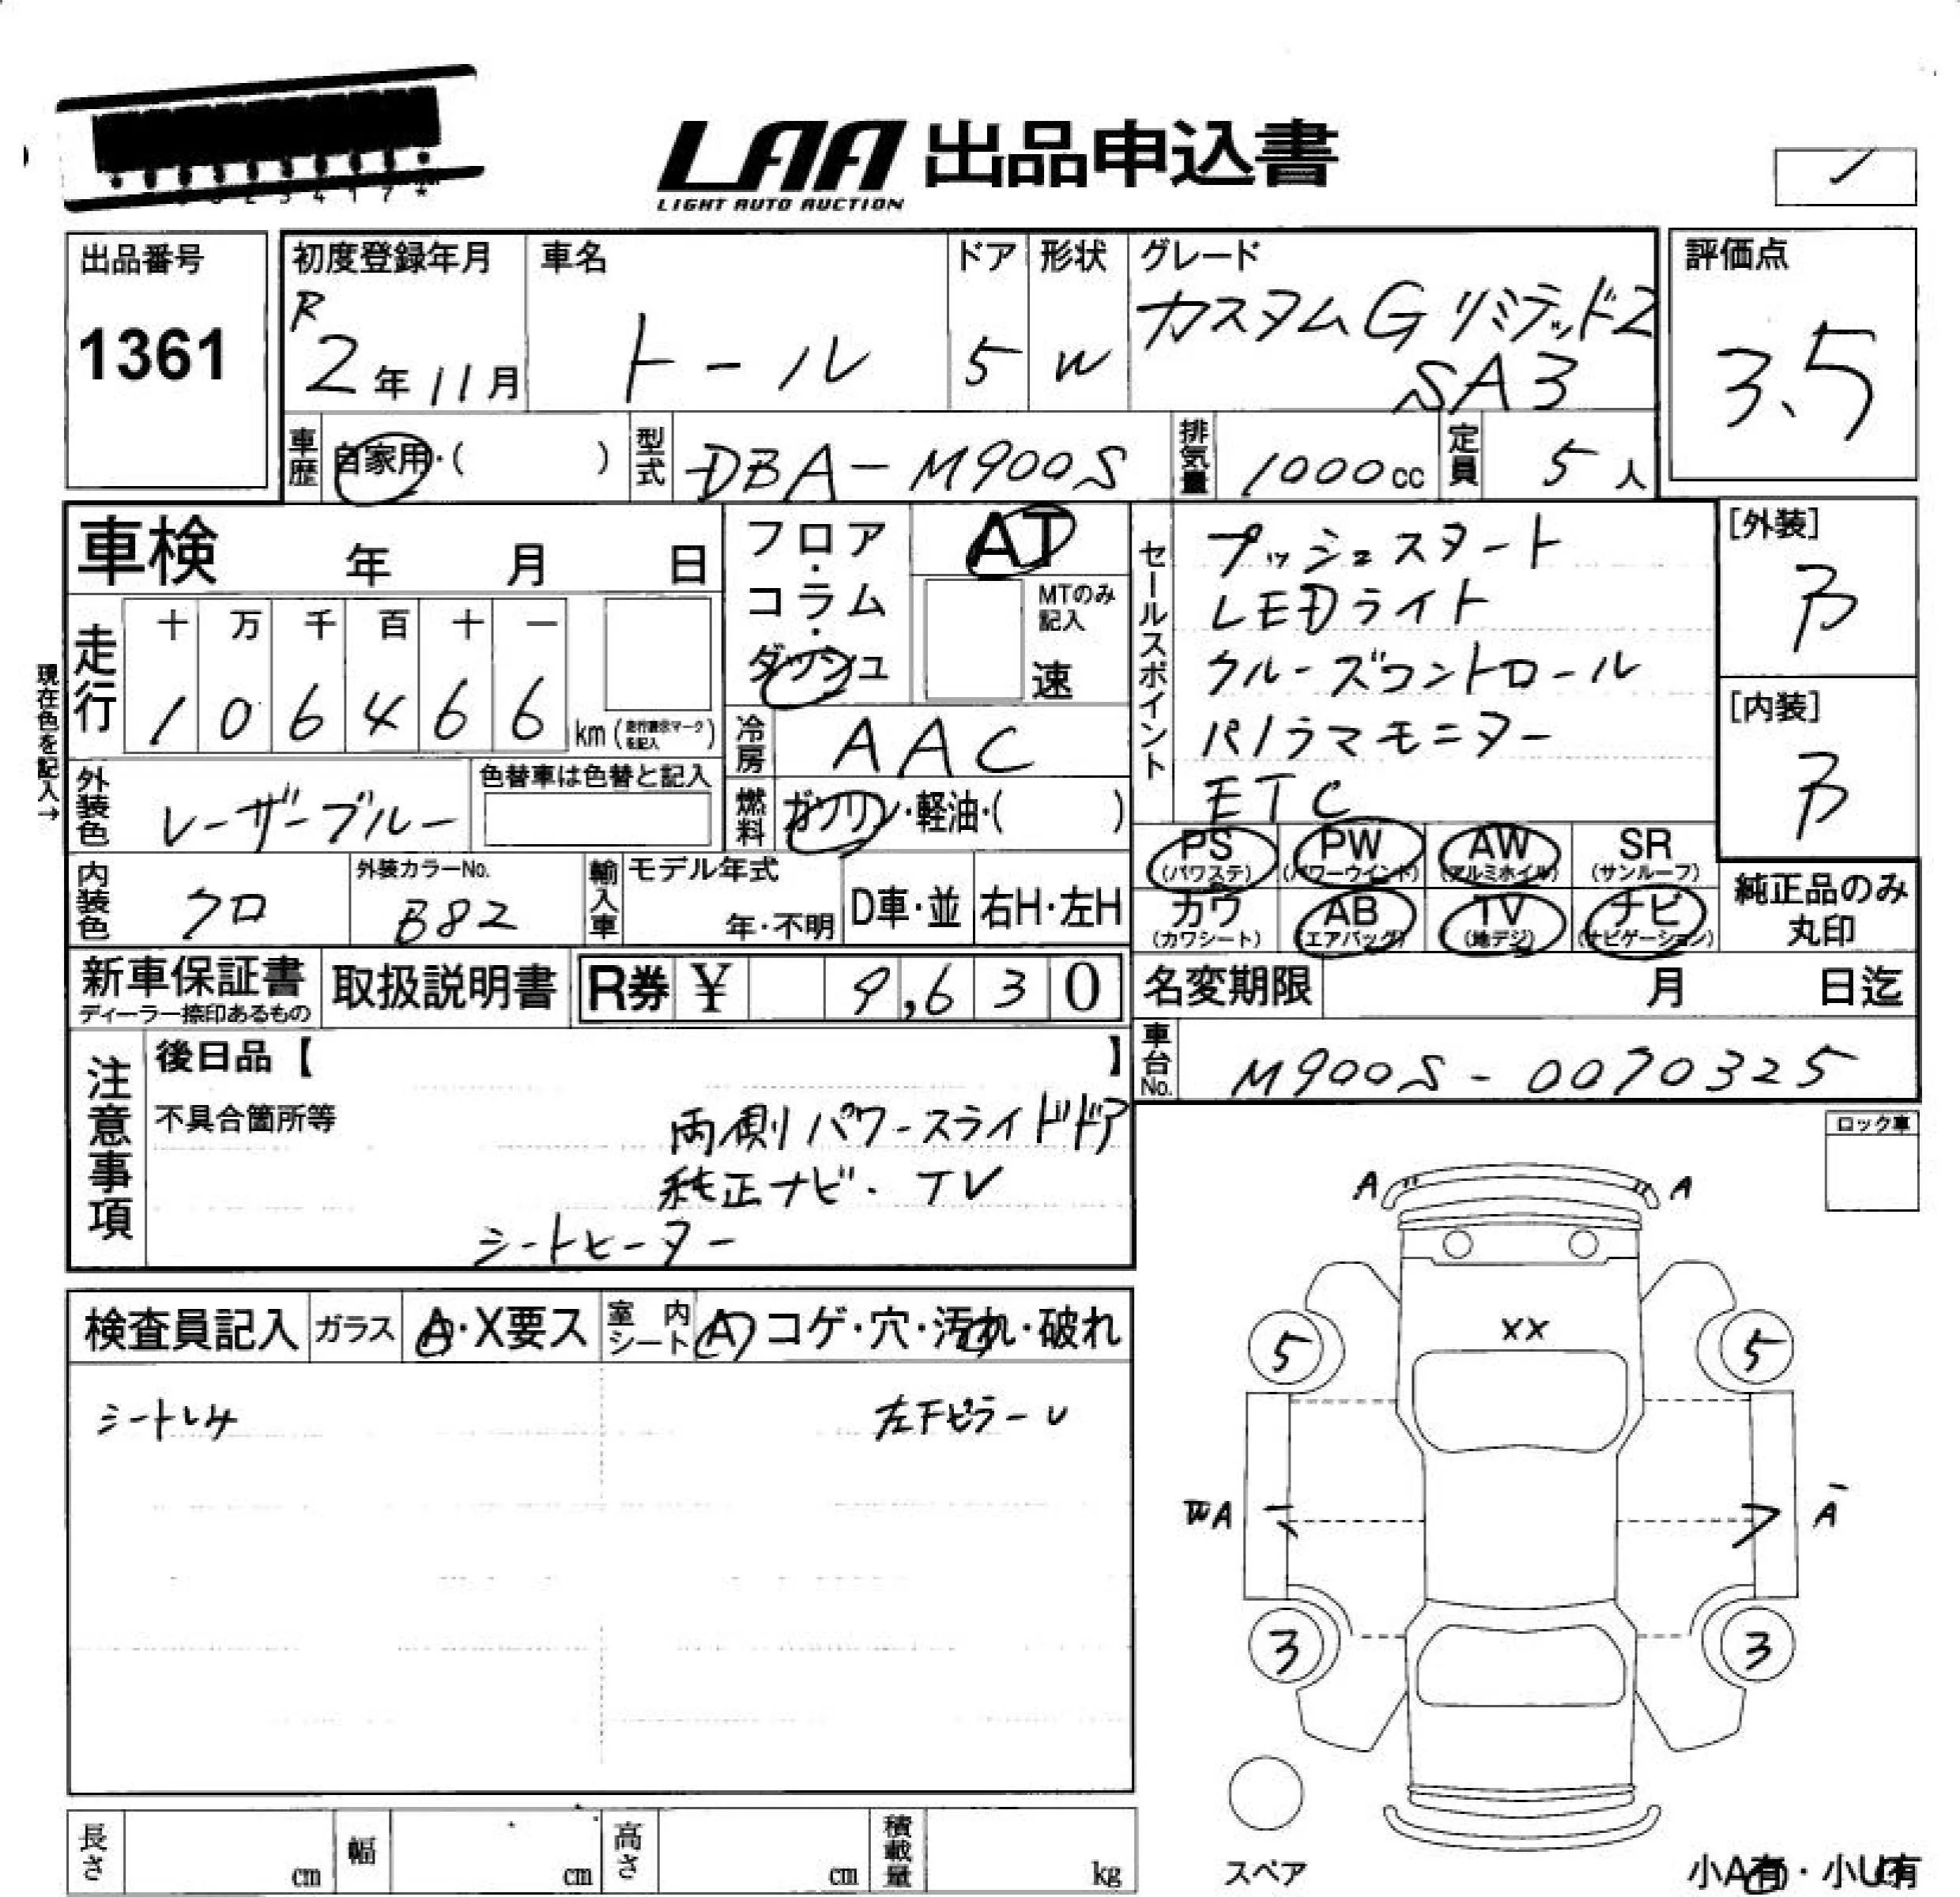 LAA 出品申込書
LIGHT AUTO AUCTION
出品番号
1361
初度登録年月
R
2年11月
車名
トール
ドア
5
形状
W
グレード
カスタムGリミテッド2
SA3
評価点
3.5
車歴
自家用・( )
型式
DBA-M900S
排気量
1000cc
定員
5人
車検 年 月 日
フロア・コラム・ダッシュ
AT
MTのみ
記入
速
セールスポイント
プッシュスタート
LEDライト
クルーズコントロール
パノラマモニター
ETC
[外装]
B
[内装]
B
現在色を記入→
走行
十 万 千 百 十 一
1 0 6 4 6 6
km(走行表示マークを記入)
冷房
AAC
外装色
レーザーブルー
色替車は色替と記入
燃料
ガソリン・軽油・( )
内装色
クロ
外装カラーNo.
B82
輸入車
モデル年式
年・不明
D車・並
右H・左H
PS
(パワステ)
PW
(パワーウインド)
AW
(アルミホイル)
SR
(サンルーフ)
カワ
(カワシート)
AB
(エアバッグ)
TV
(地デジ)
ナビ
(ナビゲーション)
純正品のみ
丸印
新車保証書
ディーラー捺印あるもの
取扱説明書
R券 ¥ 9,630
名変期限 月 日迄
車台No.
M900S-0070325
注意事項
後日品【 】
不具合箇所等
両側パワースライドドア
純正ナビ・TV
シートヒーター
ロック車
検査員記入
ガラス
A・X要ス
室内
シート
A コゲ・穴・汚れ・破れ
シートレケ
左下ピラーU
A A
XX
5 5
A
A
3 3
スペア
小A有・小U有
長さ cm
幅 cm
高さ cm
積載量 kg